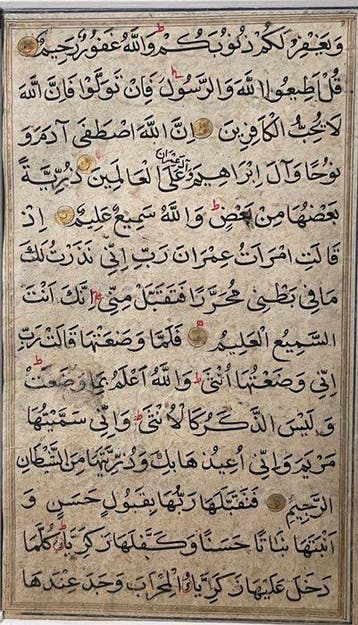 وَيَغْفِرْ لَكُمْ ذُنُوبَكُمْ وَاللَّهُ غَفُورٌ رَحِيمٌ
قُلْ أَطِيعُوا اللَّهَ وَالرَّسُولَ فَإِنْ تَوَلَّوْا فَإِنَّ اللَّهَ
لَا يُحِبُّ الْكَافِرِينَ إِنَّ اللَّهَ اصْطَفَى آدَمَ وَ
نُوحًا وَآلَ إِبْرَاهِيمَ وَآلَ عِمْرَانَ عَلَى الْعَالَمِينَ ذُرِّيَّةً
بَعْضُهَا مِنْ بَعْضٍ وَاللَّهُ سَمِيعٌ عَلِيمٌ إِذْ
قَالَتِ امْرَأَتُ عِمْرَانَ رَبِّ إِنِّي نَذَرْتُ لَكَ
مَا فِي بَطْنِي مُحَرَّرًا فَتَقَبَّلْ مِنِّي إِنَّكَ أَنْتَ
السَّمِيعُ الْعَلِيمُ فَلَمَّا وَضَعَتْهَا قَالَتْ رَبِّ
إِنِّي وَضَعْتُهَا أُنْثَى وَاللَّهُ أَعْلَمُ بِمَا وَضَعَتْ
وَلَيْسَ الذَّكَرُ كَالْأُنْثَى وَإِنِّي سَمَّيْتُهَا
مَرْيَمَ وَإِنِّي أُعِيذُهَا بِكَ وَذُرِّيَّتَهَا مِنَ الشَّيْطَانِ
الرَّجِيمِ فَتَقَبَّلَهَا رَبُّهَا بِقَبُولٍ حَسَنٍ وَ
أَنْبَتَهَا نَبَاتًا حَسَنًا وَكَفَّلَهَا زَكَرِيَّا كُلَّمَا
دَخَلَ عَلَيْهَا زَكَرِيَّا الْمِحْرَابَ وَجَدَ عِنْدَهَا